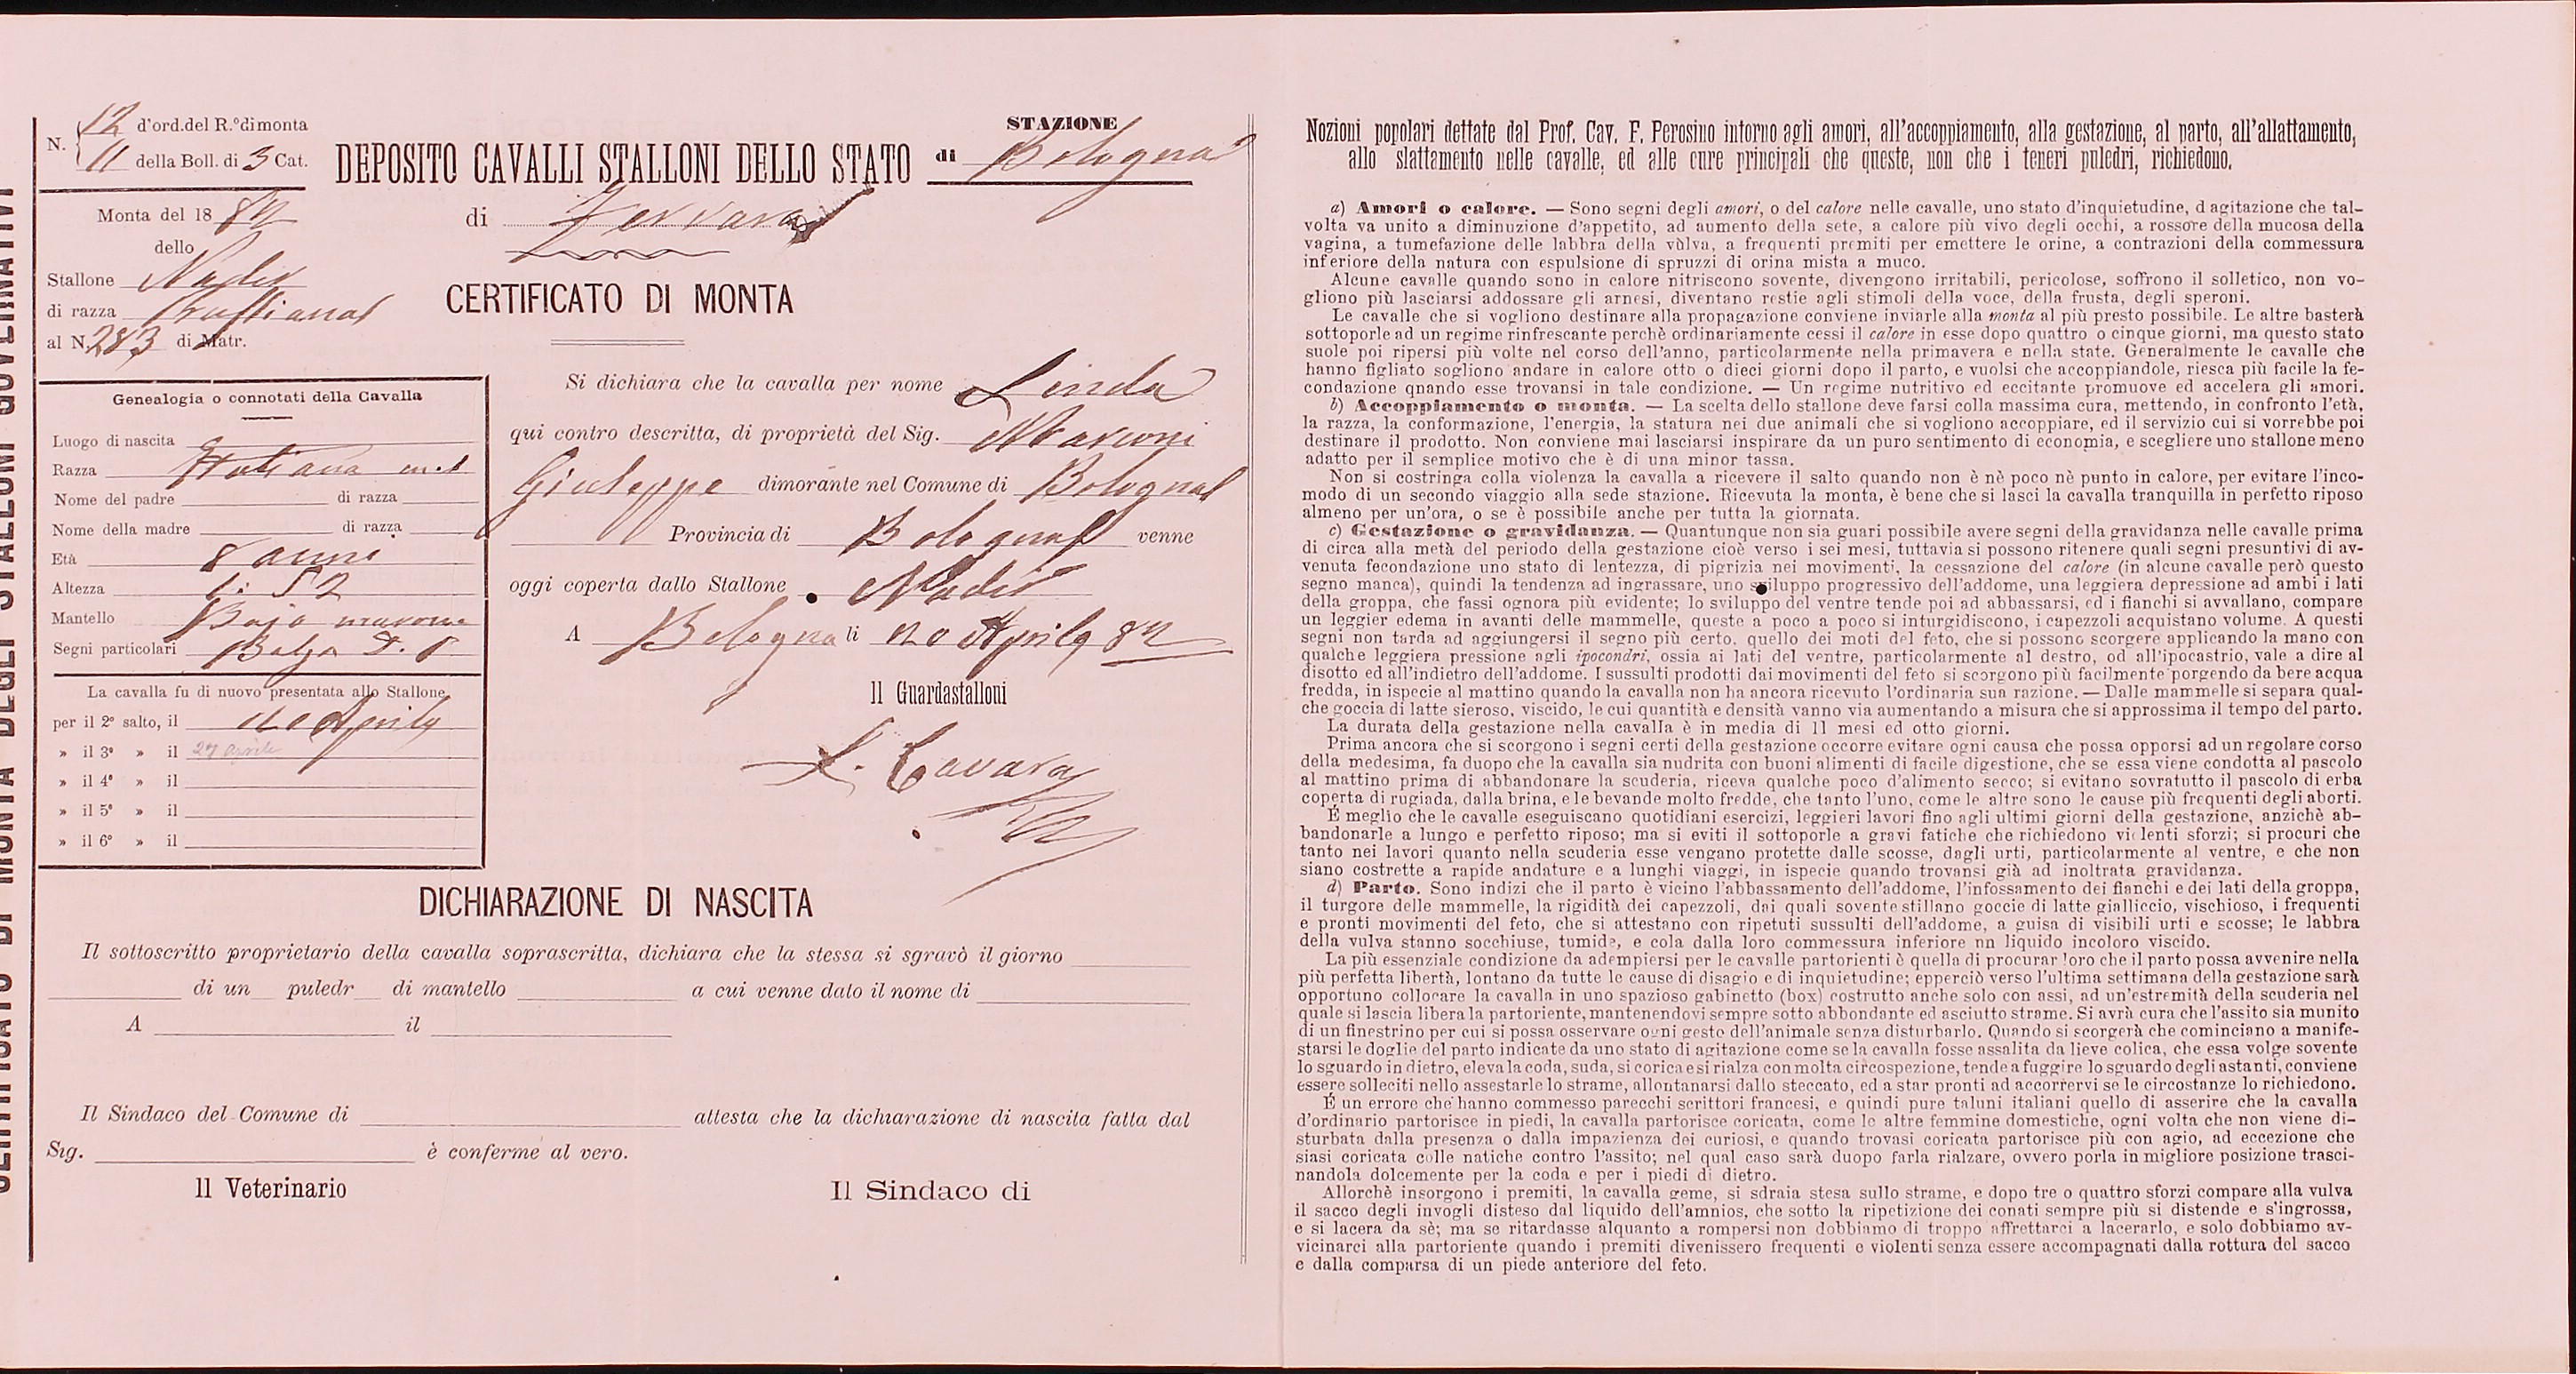 CERTIFICATO DI MONTA DEGLI STALLONI GOVERNATIVI
N. 12 d'ord. del R.º di monta
11 della Boll. di 3 Cat.
Monta del 1882
dello
Stallone Nadir
di razza Prussiana
al N. 283 di Matr.
DEPOSITO CAVALLI STALLONI DELLO STATO
di Ferrara
STAZIONE
di Bologna
CERTIFICATO DI MONTA
Genealogia o connotati della Cavalla
Luogo di nascita
Razza Italiana
Nome del padre di razza
Nome della madre di razza
Età 8 anni
Altezza 1: 52
Mantello Bajo marrone
Segni particolari Balza
La cavalla fu di nuovo presentata allo Stallone
per il 2º salto, il Aprile
» il 3º » il 27 Aprile
» il 4º » il
» il 5º » il
» il 6º » il
Si dichiara che la cavalla per nome Linda
qui contro descritta, di proprietà del Sig. Marconi
Giuseppe dimorante nel Comune di Bologna
Provincia di Bologna venne
oggi coperta dallo Stallone Nadir
A Bologna li 20 Aprile 82
Il Guardastalloni
L. Cavara
DICHIARAZIONE DI NASCITA
Il sottoscritto proprietario della cavalla soprascritta, dichiara che la stessa si sgravò il giorno
di un puledr di mantello a cui venne dato il nome di
A il
Il Sindaco del Comune di attesta che la dichiarazione di nascita fatta dal
Sig. è conferme al vero.
Il Veterinario Il Sindaco di
Nozioni popolari dettate dal Prof. Cav. F. Perosino intorno agli amori, all'accoppiamento, alla gestazione, al parto, all'allattamento,
allo slattamento nelle cavalle, ed alle cure principali che queste, non che i teneri puledri, richiedono.
a) Amori o calore. — Sono segni degli amori, o del calore nelle cavalle, uno stato d'inquietudine, d agitazione che tal-
volta va unito a diminuzione d'appetito, ad aumento della sete, a calore più vivo degli occhi, a rossore della mucosa della
vagina, a tumefazione delle labbra della vùlva, a frequenti premiti per emettere le orine, a contrazioni della commessura
inferiore della natura con espulsione di spruzzi di orina mista a muco.
Alcune cavalle quando sono in calore nitriscono sovente, divengono irritabili, pericolose, soffrono il solletico, non vo-
gliono più lasciarsi addossare gli arnesi, diventano restie agli stimoli della voce, della frusta, degli speroni.
Le cavalle che si vogliono destinare alla propagazione conviene inviarle alla monta al più presto possibile. Le altre basterà
sottoporle ad un regime rinfrescante perchè ordinariamente cessi il calore in esse dopo quattro o cinque giorni, ma questo stato
suole poi ripersi più volte nel corso dell'anno, particolarmente nella primavera e nella state. Generalmente le cavalle che
hanno figliato sogliono andare in calore otto o dieci giorni dopo il parto, e vuolsi che accoppiandole, riesca più facile la fe-
condazione qnando esse trovansi in tale condizione. — Un regime nutritivo ed eccitante promuove ed accelera gli amori.
b) Accoppiamento o monta. — La scelta dello stallone deve farsi colla massima cura, mettendo, in confronto l'età,
la razza, la conformazione, l'energia, la statura nei due animali che si vogliono accoppiare, ed il servizio cui si vorrebbe poi
destinare il prodotto. Non conviene mai lasciarsi inspirare da un puro sentimento di economia, e scegliere uno stallone meno
adatto per il semplice motivo che è di una minor tassa.
Non si costringa colla violenza la cavalla a ricevere il salto quando non è nè poco nè punto in calore, per evitare l'inco-
modo di un secondo viaggio alla sede stazione. Ricevuta la monta, è bene che si lasci la cavalla tranquilla in perfetto riposo
almeno per un'ora, o se è possibile anche per tutta la giornata.
c) Gestazione o gravidanza. — Quantunque non sia guari possibile avere segni della gravidanza nelle cavalle prima
di circa alla metà del periodo della gestazione cioè verso i sei mesi, tuttavia si possono ritenere quali segni presuntivi di av-
venuta fecondazione uno stato di lentezza, di pigrizia nei movimenti, la cessazione del calore (in alcune cavalle però questo
segno manca), quindi la tendenza ad ingrassare, uno sviluppo progressivo dell'addome, una leggiera depressione ad ambi i lati
della groppa, che fassi ognora più evidente; lo sviluppo del ventre tende poi ad abbassarsi, ed i fianchi si avvallano, compare
un leggier edema in avanti delle mammelle, queste a poco a poco si inturgidiscono, i capezzoli acquistano volume. A questi
segni non tarda ad aggiungersi il segno più certo. quello dei moti del feto, che si possono scorgere applicando la mano con
qualche leggiera pressione agli ipocondri, ossia ai lati del ventre, particolarmente al destro, od all'ipocastrio, vale a dire al
disotto ed all'indietro dell'addome. I sussulti prodotti dai movimenti del feto si scorgono più facilmente porgendo da bere acqua
fredda, in ispecie al mattino quando la cavalla non ha ancora ricevuto l'ordinaria sua razione. — Dalle mammelle si separa qual-
che goccia di latte sieroso, viscido, le cui quantità e densità vanno via aumentando a misura che si approssima il tempo del parto.
La durata della gestazione nella cavalla è in media di 11 mesi ed otto giorni.
Prima ancora che si scorgono i segni certi della gestazione occorre evitare ogni causa che possa opporsi ad un regolare corso
della medesima, fa duopo che la cavalla sia nudrita con buoni alimenti di facile digestione, che se essa viene condotta al pascolo
al mattino prima di abbandonare la scuderia, riceva qualche poco d'alimento secco; si evitano sovratutto il pascolo di erba
coperta di rugiada, dalla brina, e le bevande molto fredde, che tanto l'uno, come le altre sono le cause più frequenti degli aborti.
É meglio che le cavalle eseguiscano quotidiani esercizi, leggieri lavori fino agli ultimi giorni della gestazione, anzichè ab-
bandonarle a lungo e perfetto riposo; ma si eviti il sottoporle a gravi fatiche che richiedono violenti sforzi; si procuri che
tanto nei lavori quanto nella scuderia esse vengano protette dalle scosse, dagli urti, particolarmente al ventre, e che non
siano costrette a rapide andature e a lunghi viaggi, in ispecie quando trovansi già ad inoltrata gravidanza.
d) Parto. Sono indizi che il parto è vicino l'abbassamento dell'addome, l'infossamento dei fianchi e dei lati della groppa,
il turgore delle mammelle, la rigidità dei capezzoli, dai quali sovente stillano goccie di latte gialliccio, vischioso, i frequenti
e pronti movimenti del feto, che si attestano con ripetuti sussulti dell'addome, a guisa di visibili urti e scosse; le labbra
della vulva stanno socchiuse, tumide, e cola dalla loro commessura inferiore un liquido incoloro viscido.
La più essenziale condizione da adempiersi per le cavalle partorienti è quella di procurar loro che il parto possa avvenire nella
più perfetta libertà, lontano da tutte le cause di disagio e di inquietudine; epperciò verso l'ultima settimana della gestazione sarà
opportuno collocare la cavalla in uno spazioso gabinetto (box) costrutto anche solo con assi, ad un'estremità della scuderia nel
quale si lascia libera la partoriente, mantenendovi sempre sotto abbondante ed asciutto strame. Si avrà cura che l'assito sia munito
di un finestrino per cui si possa osservare ogni gesto dell'animale senza disturbarlo. Quando si scorgerà che cominciano a manife-
starsi le doglie del parto indicate da uno stato di agitazione come se la cavalla fosse assalita da lieve colica, che essa volge sovente
lo sguardo in dietro, eleva la coda, suda, si corica e si rialza con molta circospezione, tende a fuggire lo sguardo degli astanti, conviene
essere solleciti nello assestarle lo strame, allontanarsi dallo steccato, ed a star pronti ad accorrervi se le circostanze lo richiedono.
É un errore che hanno commesso parecchi scrittori francesi, e quindi pure taluni italiani quello di asserire che la cavalla
d'ordinario partorisce in piedi, la cavalla partorisce coricata, come le altre femmine domestiche, ogni volta che non viene di-
sturbata dalla presenza o dalla impazienza dei curiosi, e quando trovasi coricata partorisce più con agio, ad eccezione che
siasi coricata colle natiche contro l'assito; nel qual caso sarà duopo farla rialzare, ovvero porla in migliore posizione trasci-
nandola dolcemente per la coda e per i piedi di dietro.
Allorchè insorgono i premiti, la cavalla geme, si sdraia stesa sullo strame, e dopo tre o quattro sforzi compare alla vulva
il sacco degli invogli disteso dal liquido dell'amnios, che sotto la ripetizione dei conati sempre più si distende e s'ingrossa,
e si lacera da sè; ma se ritardasse alquanto a rompersi non dobbiamo di troppo affrettarci a lacerarlo, e solo dobbiamo av-
vicinarci alla partoriente quando i premiti divenissero frequenti o violenti senza essere accompagnati dalla rottura del sacco
e dalla comparsa di un piede anteriore del feto.